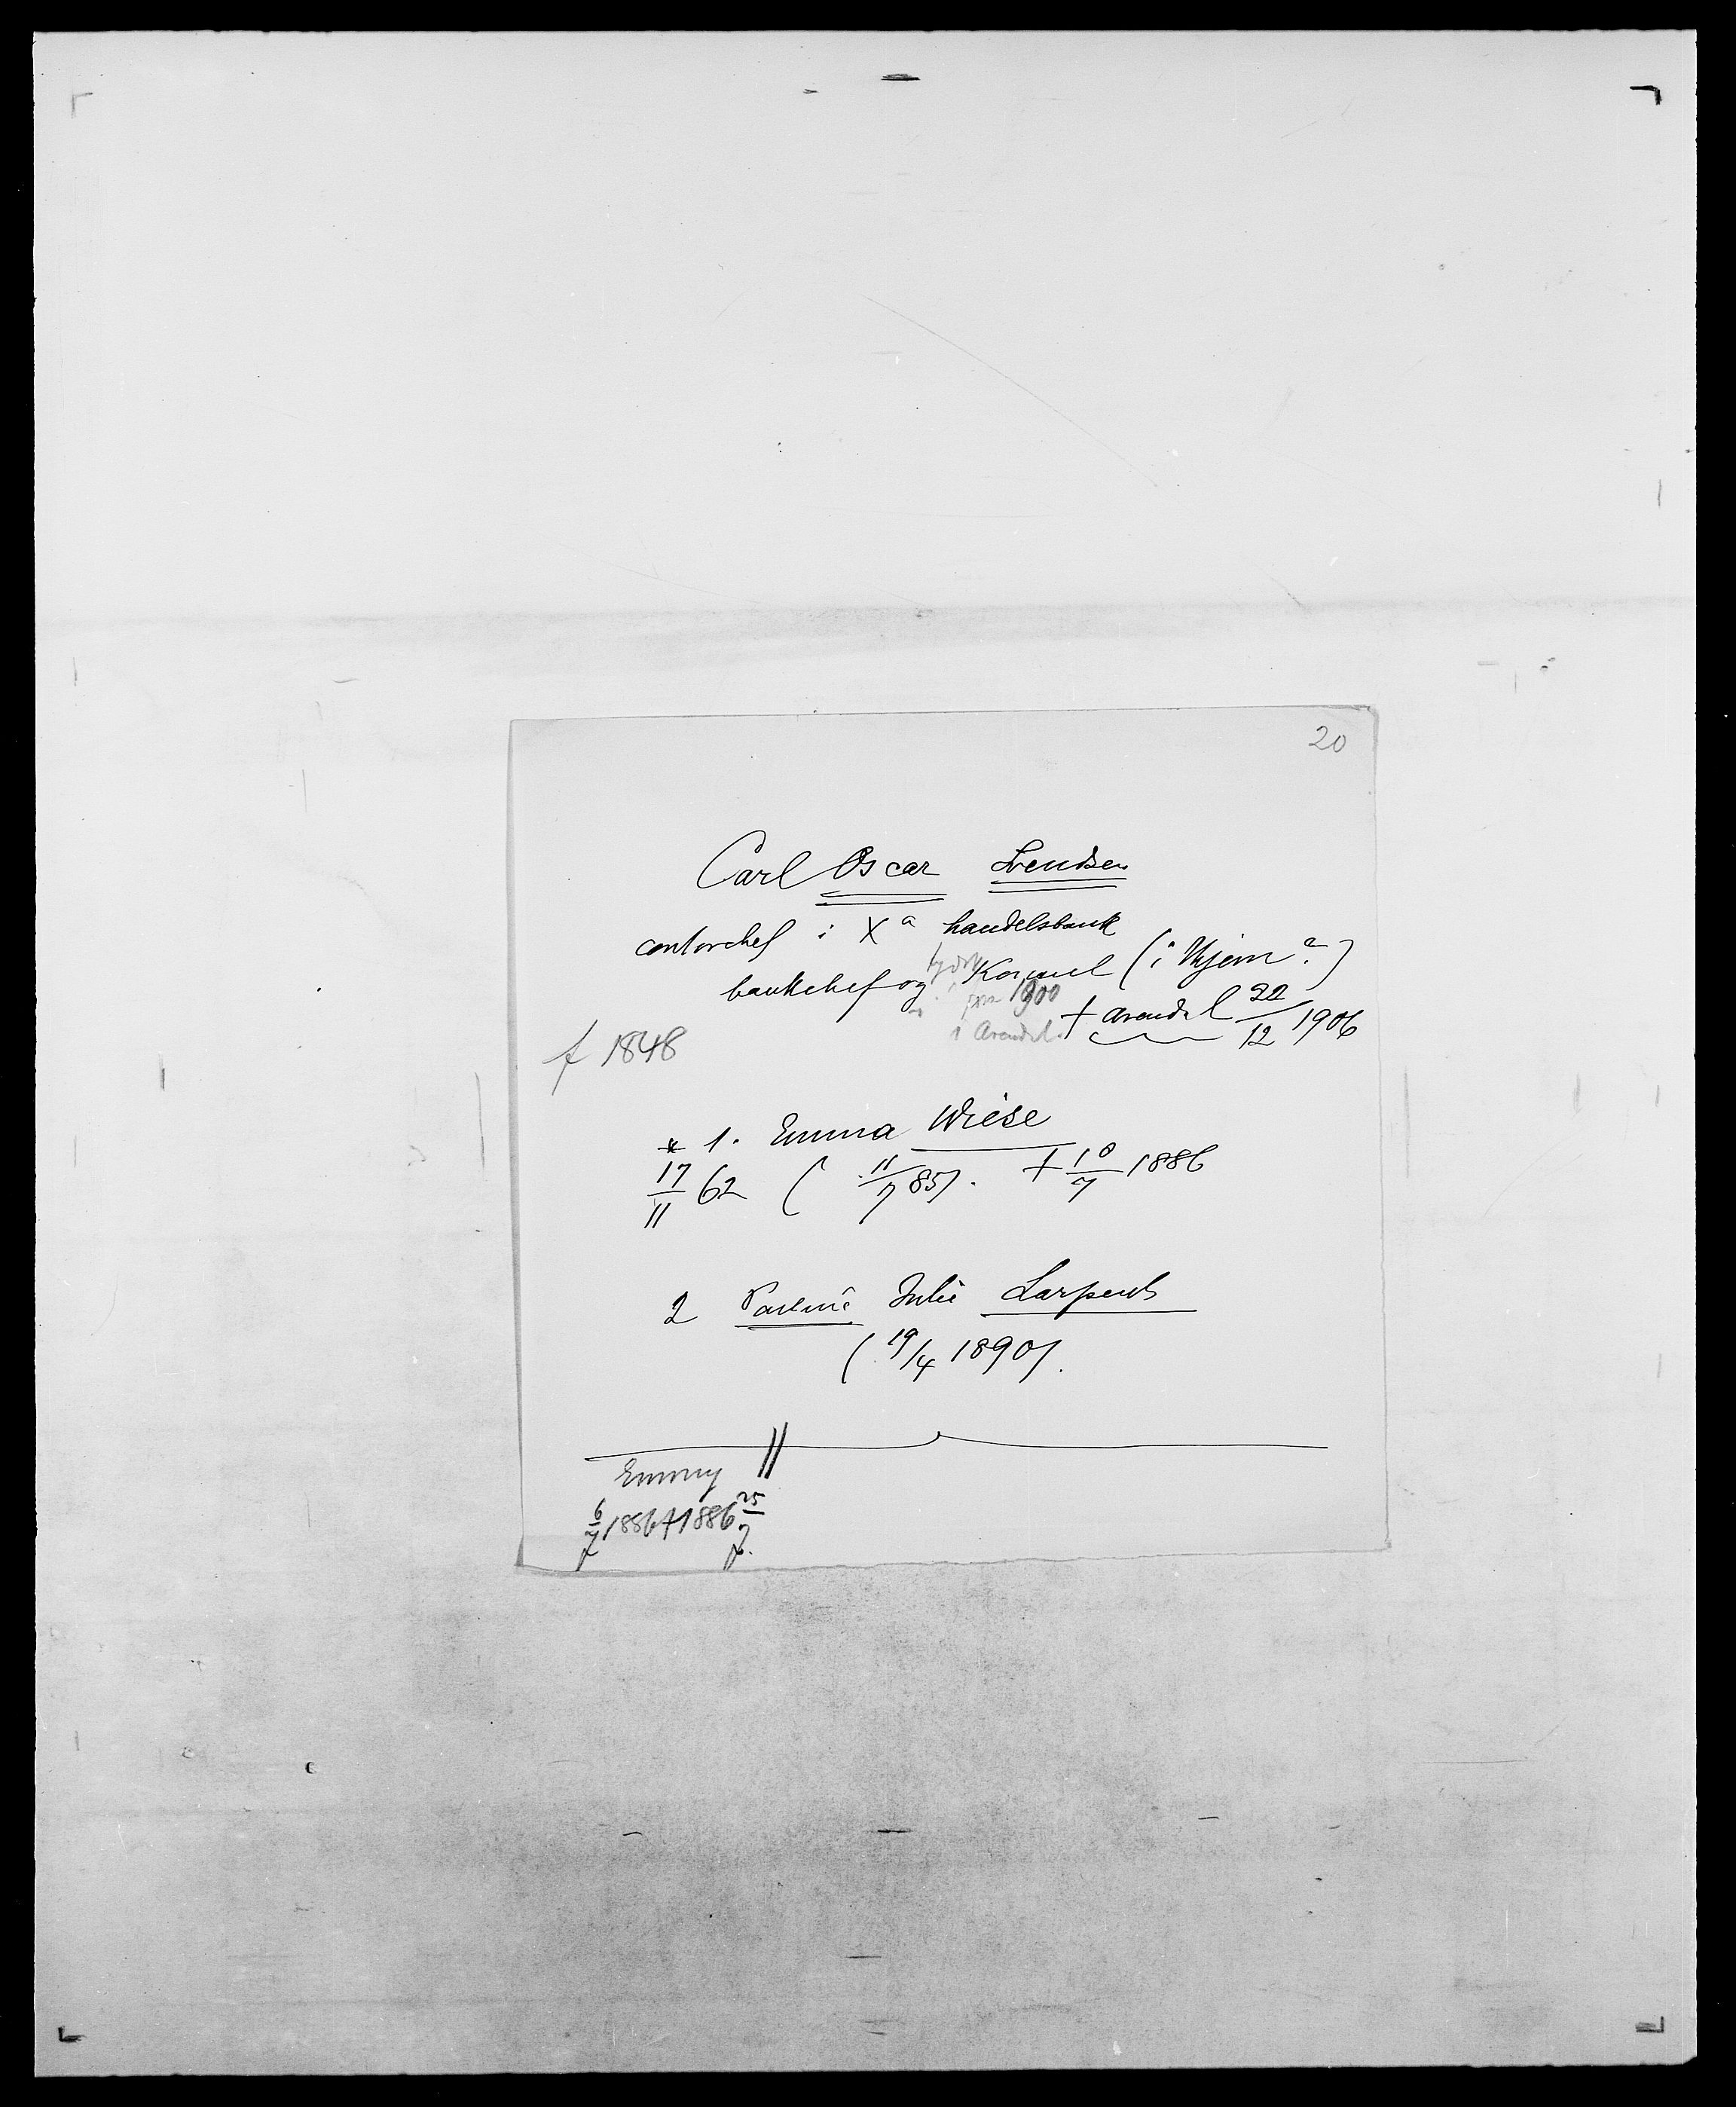 20
Carl Oscar Svendsen
contorchef i Xa handelsbank
bankchef og tydsk Konsul (i Thjem?)
fra 1900
i Arendal. † Arendal 22/12 1906
f 1848
* 1. Emma Wiese
17/11 62 ( 11/7 85). † 10/7 1886
2 Pauline Julie Larpent
(19/4 1890).
Emmy
6/7 1886 † 1886 25/7